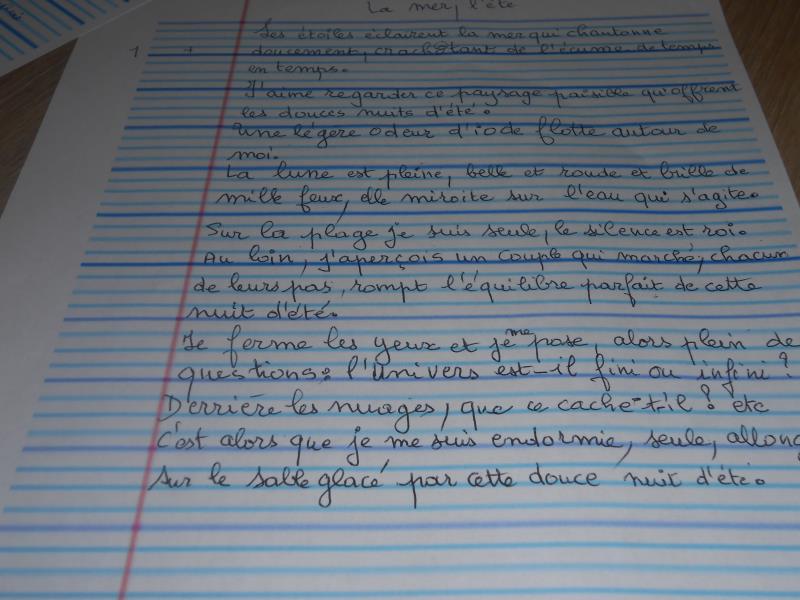 La mer, l'été
1
Les étoiles éclairent la mer qui chantonne
doucement, crachôtant de l'écume de temps
en temps.
J'aime regarder ce paysage paisible qu'offrent
les douces nuits d'été.
Une légère odeur d'iode flotte autour de
moi.
La lune est pleine, belle et ronde et brille de
mille feux, elle miroite sur l'eau qui s'agite.
Sur la plage je suis seule, le silence est roi.
Au loin, j'aperçois un couple qui marche, chacun
de leurs pas, rompt l'équilibre parfait de cette
nuit d'été.
Je ferme les yeux et je me pose, alors plein de
questions : l'univers est-il fini ou infini ?
Derrière les nuages, que ce cache-t-il ? etc
C'est alors que je me suis endormie, seule, allong
sur le sable glacé par cette douce nuit d'été.